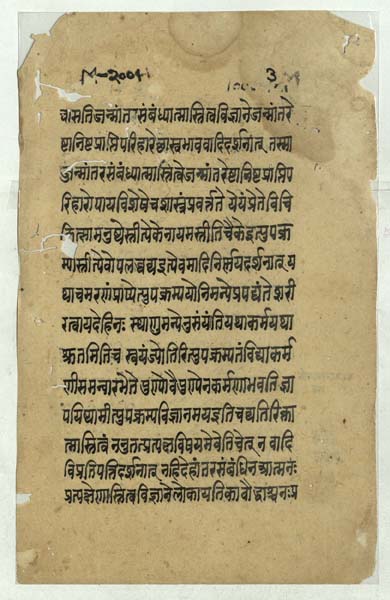 M-2001 3
चासतिजन्मांतरसंबंध्यात्मास्तित्वविज्ञानेजन्मांतरे
ष्टानिष्टप्राप्तिपरिहारेच्छास्वभाववादिदर्शनात् तस्मा
ज्जन्मांतरसंबंध्यात्मास्तित्वेजन्मांतरेष्टानिष्टप्राप्तिप
रिहारोपायविशेषेचशास्त्रंप्रवर्त्तते येयंप्रेतेविचि
कित्सामनुष्येस्तीत्येकेनायमस्तीतिचैकेइत्युपक्र
म्यास्तीत्येवोपलब्धव्यइत्येवमादिनिर्णयदर्शनात् य
थाचमरणंप्राप्येत्युपक्रम्ययोनिमन्येप्रपद्यंतेशरी
रत्वायदेहिनः स्थाणुमन्येनुसंयंतियथाकर्मयथा
श्रुतमितिच स्वयंज्योतिरित्युपक्रम्यतंविद्याकर्म
णीसमन्वारभेते पुण्योवैपुण्येनकर्मणाभवति ज्ञा
पयिष्यामीत्युपक्रम्यविज्ञानमयइतिचव्यतिरिक्ता
त्मास्तित्वं ननुतत्प्रत्यक्षविषयमेवेतिचेत् न वादि
विप्रतिपत्तिदर्शनात् नहिदेहांतरसंबंधिनआत्मनः
प्रत्यक्षेणास्तित्वविज्ञानेलोकायतिकाबौद्धाश्चनःप्र